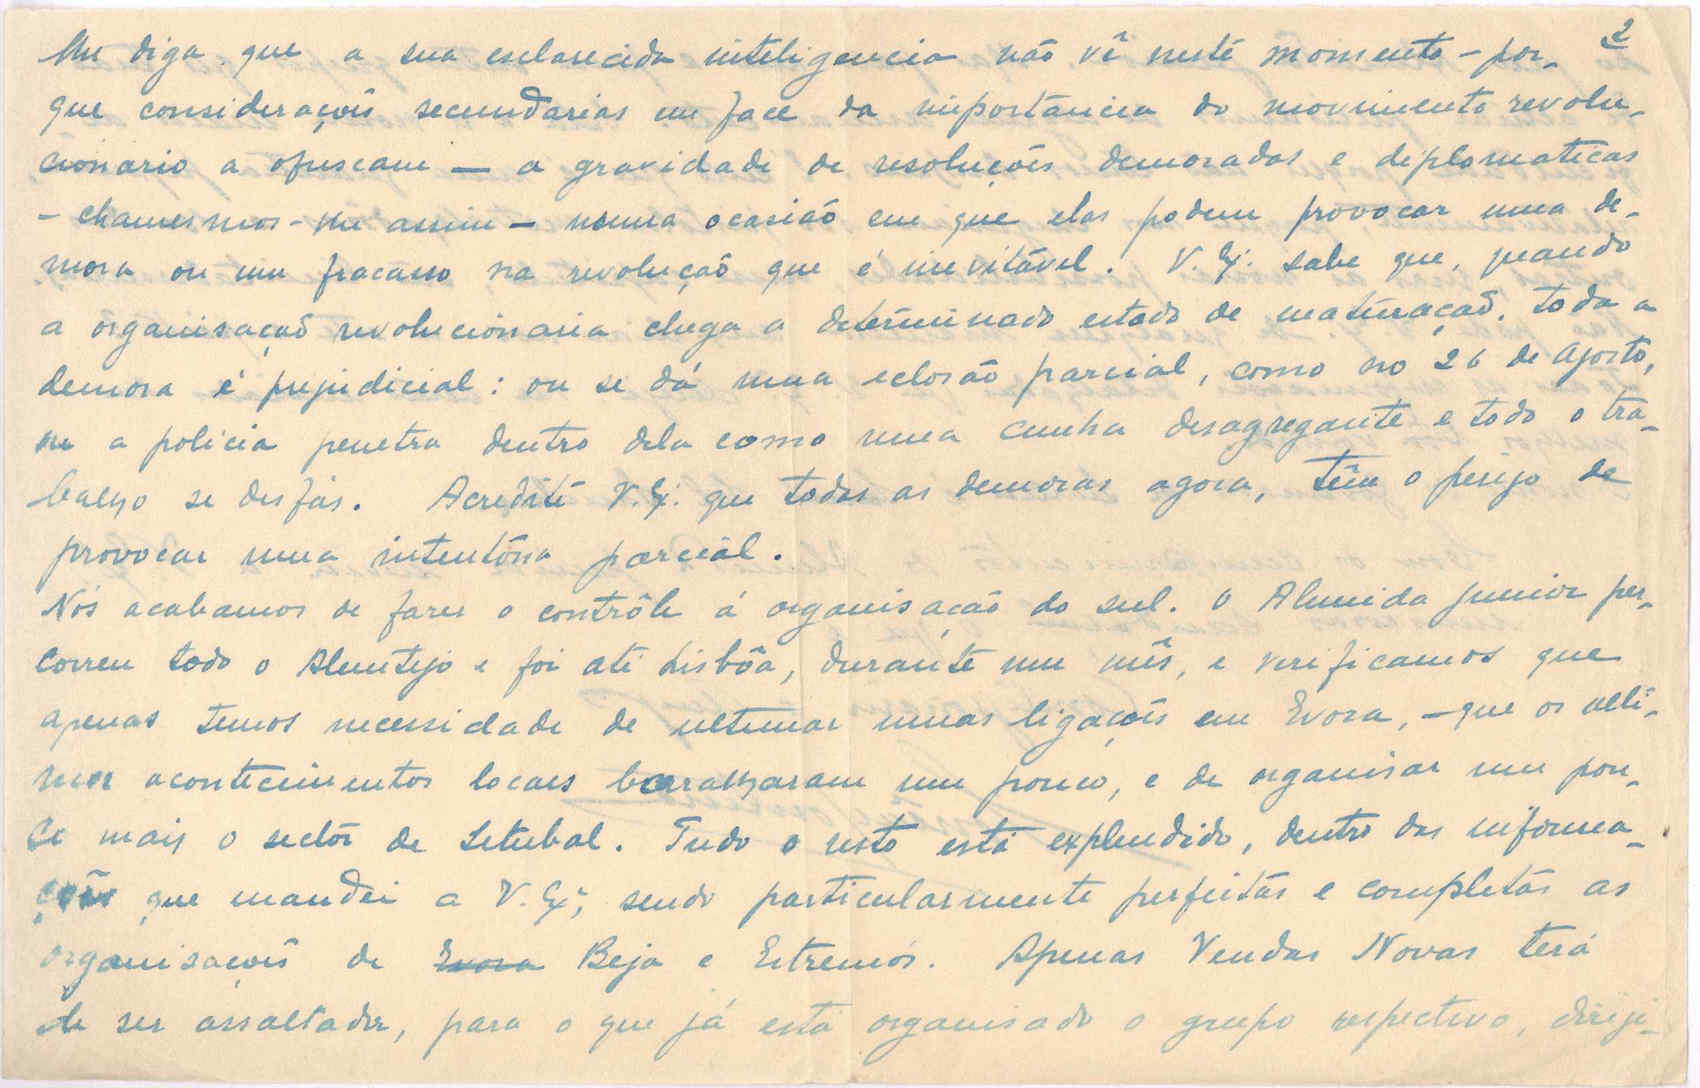 2
lhe diga que a sua esclarecida inteligencia não vê neste momento - por-
que considerações secundarias em face da importância do movimento revolu-
cionario a ofuscam — a gravidade de resoluções demoradas e diplomaticas
- chamemos-lhe assim - numa ocasião em que elas podem provocar uma de-
mora ou um fracasso na revolução que é inevitável. V. Ex. sabe que, quando
a organisação revolucionaria chega a determinado estado de maturação, toda a
demora é prejudicial: ou se dá uma eclosão parcial, como no 26 de Agosto,
ou a policia penetra dentro dela como uma cunha desagregante e todo o tra-
balho se desfás. Acredite V. Ex. que todas as demoras agora, têm o perigo de
provocar uma intentôna parcial.
Nós acabamos de fazer o contrôle á organisação do sul. O Almeida Junior per-
correu todo o Alentejo e foi até Lisbôa, durante um mês, e verificamos que
apenas temos necessidade de ultimar umas ligações em Evora, - que os ulti-
mos acontecimentos locaes baralharam um pouco, e de organisar um pou-
co mais o sector de Setubal. Tudo o resto está explendido, dentro das informa-
ções que mandei a V. Ex., sendo particularmente perfeitas e completas as
organisações de Evora Beja e Estremós. Apenas Vendas Novas terá
de ser assaltada, para o que já está organisado o grupo respectivo, dirigi-